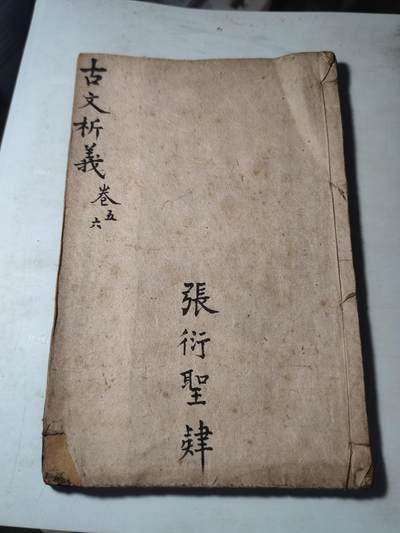 古文析義 卷五六
張衍聖肄